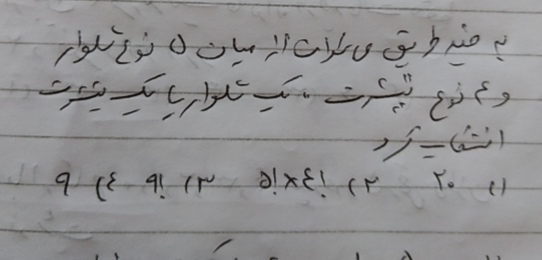 به چند طریق می توان از میان ۵ نوع شلوار
و ۴ نوع تیشرت ، یک شلوار یا یک تیشرت
انتخاب کرد
۱) ۲۰ ۲) ۵!×۴! ۳) ۹! ۴) ۹